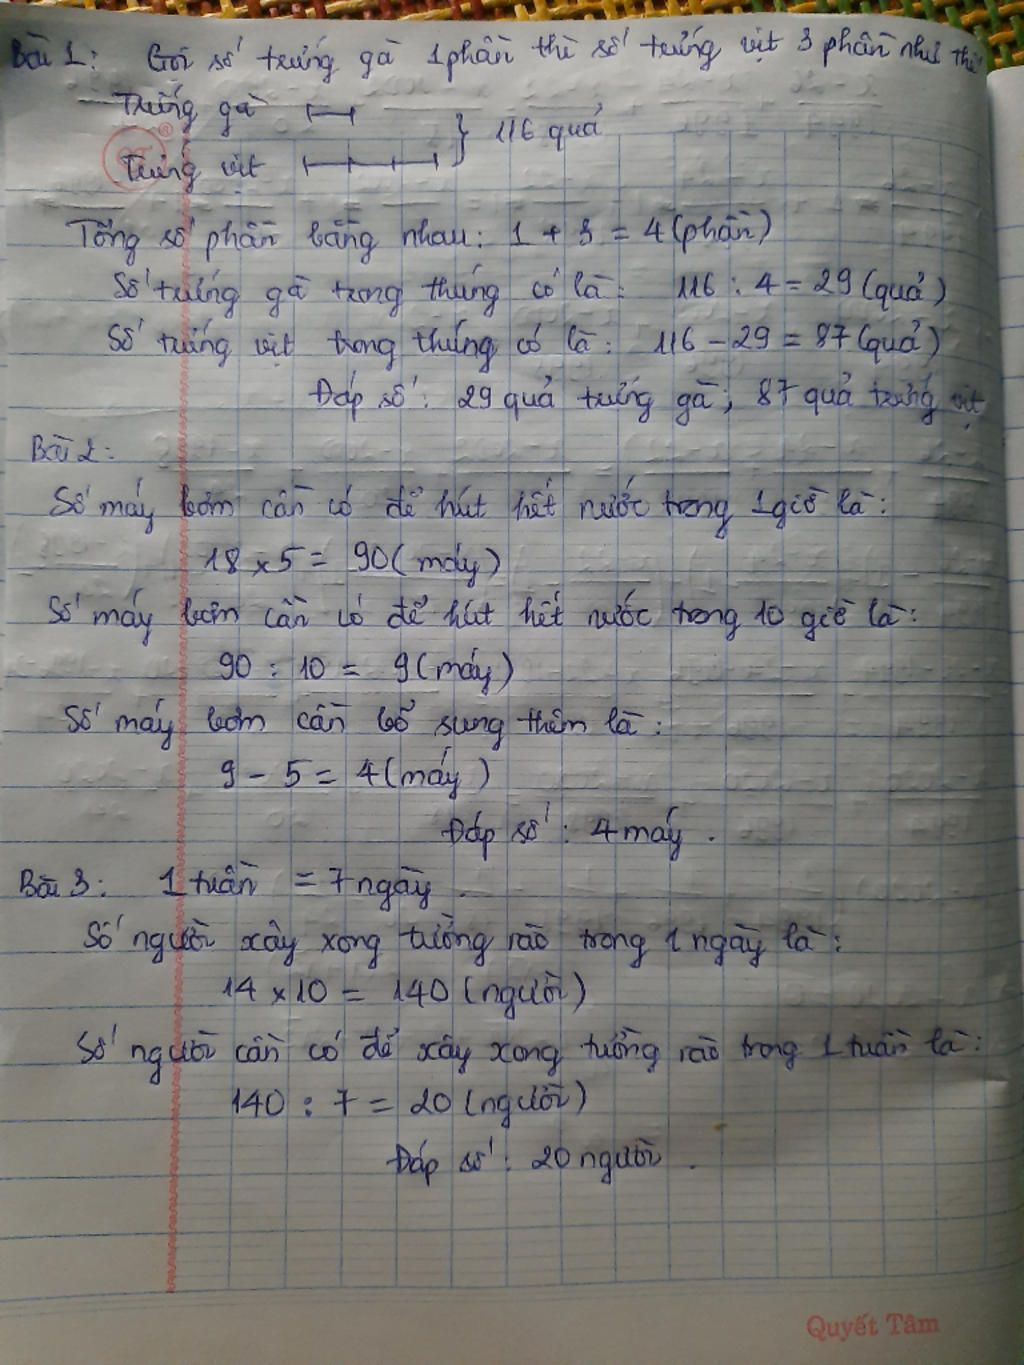 Bài 1: Gọi số trứng gà 1 phần thì số trứng vịt 3 phần như thế
Trứng gà
116 quả
Trứng vịt
Tổng số phần bằng nhau: 1 + 3 = 4 (phần)
Số trứng gà trong thúng có là: 116 : 4 = 29 (quả)
Số trứng vịt trong thúng có là: 116 - 29 = 87 (quả)
Đáp số: 29 quả trứng gà; 87 quả trứng vịt
Bài 2:
Số máy bơm cần có để hút hết nước trong 1 giờ là:
18 x 5 = 90 (máy)
Số máy bơm cần có để hút hết nước trong 10 giờ là:
90 : 10 = 9 (máy)
Số máy bơm cần bổ sung thêm là:
9 - 5 = 4 (máy)
Đáp số: 4 máy.
Bài 3: 1 tuần = 7 ngày.
Số người xây xong tường rào trong 1 ngày là:
14 x 10 = 140 (người)
Số người cần có để xây xong tường rào trong 1 tuần là:
140 : 7 = 20 (người)
Đáp số: 20 người.
Quyết Tâm